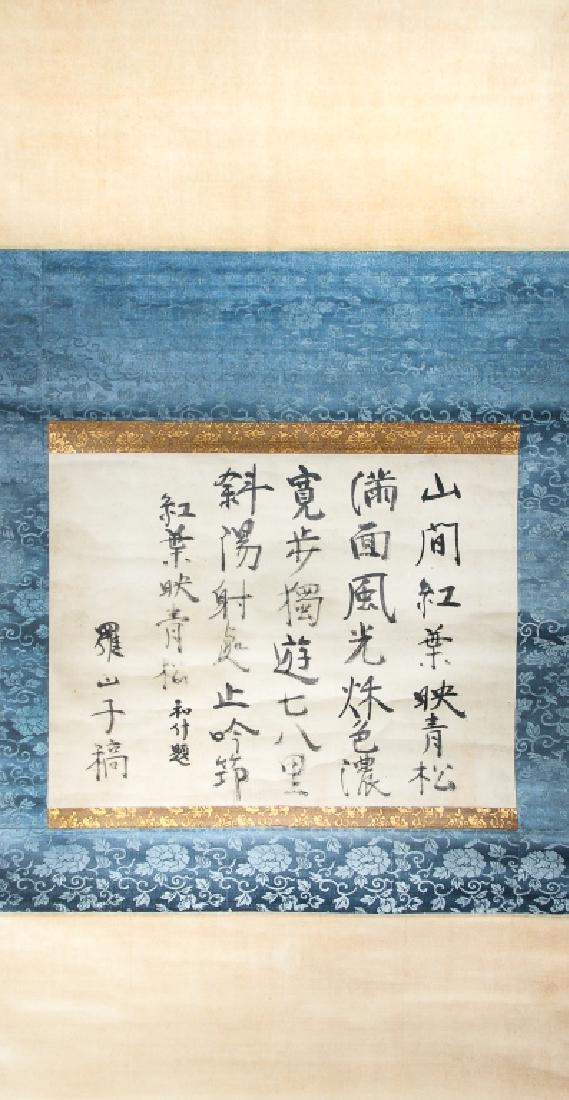 山間紅葉映青松
滿面風光烁色濃
寛步獨遊七八里
斜陽射处止吟筇
紅葉映青松 和什題
羅山子稿